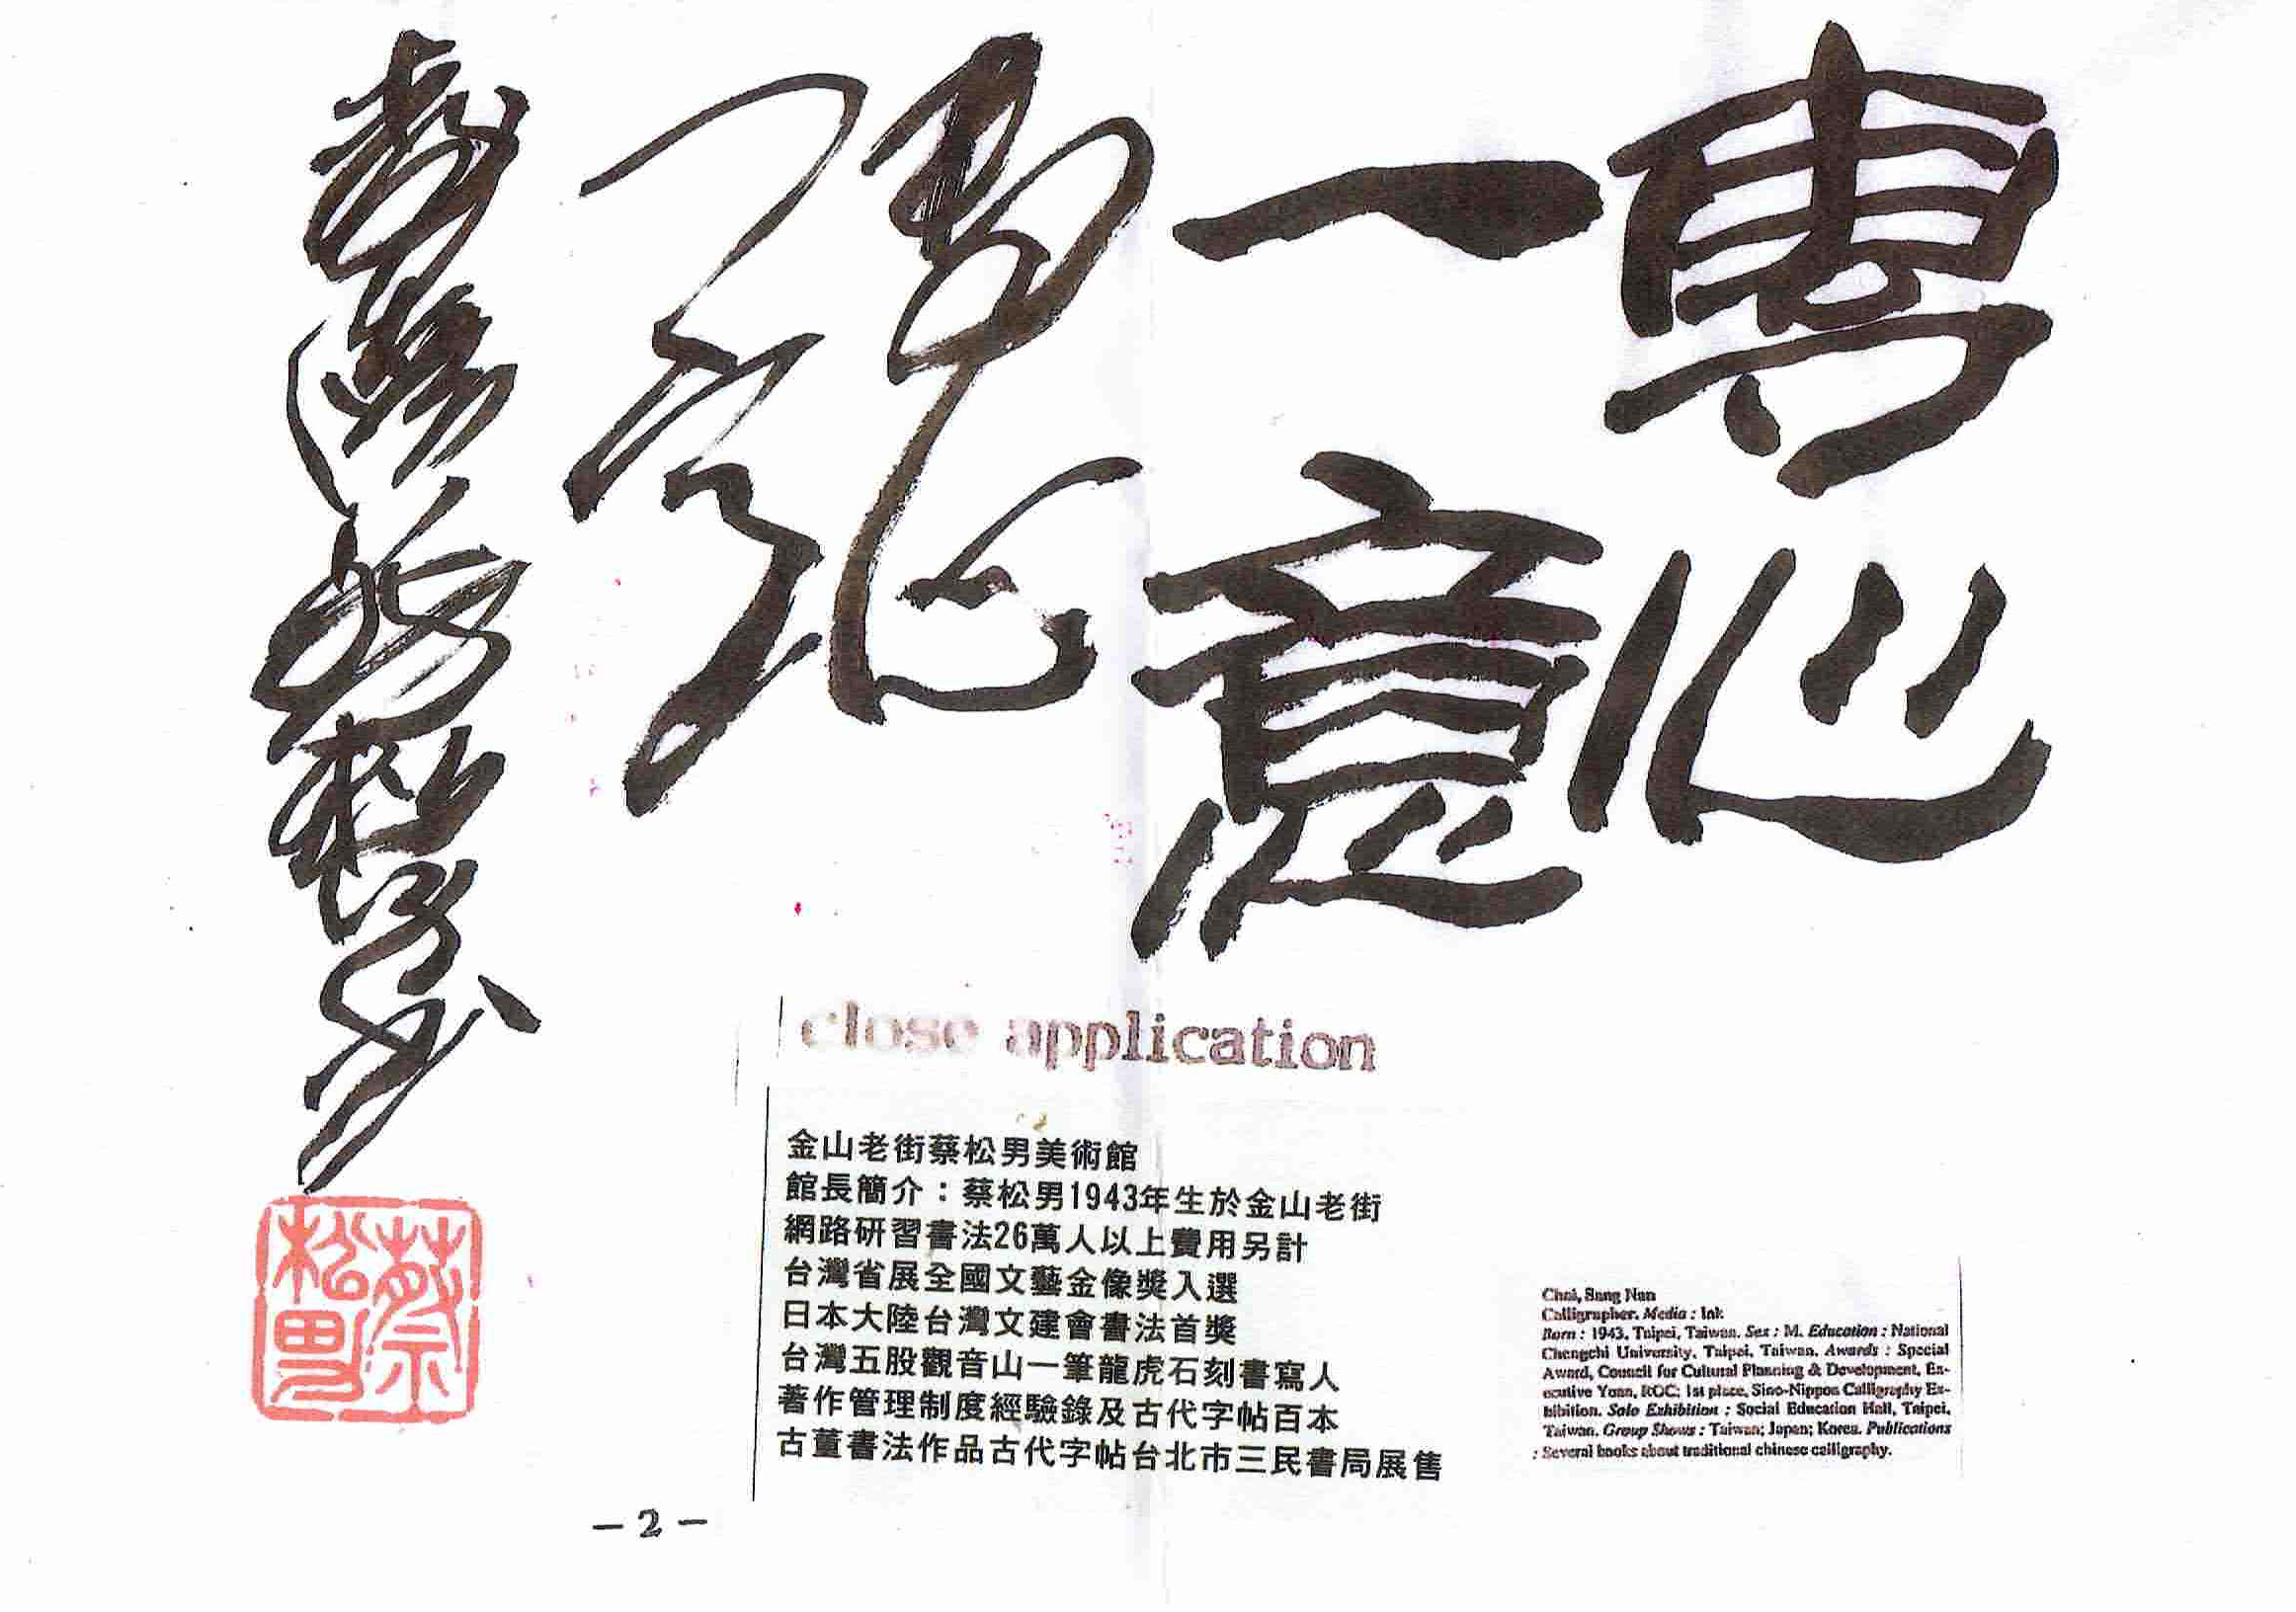 專心
一意
專心
一意
蔡松男
蔡松男
close application
金山老街蔡松男美術館
館長簡介：蔡松男1943年生於金山老街
網路研習書法26萬人以上費用另計
台灣省展全國文藝金像獎入選
日本大陸台灣文建會書法首獎
台灣五股觀音山一筆龍虎石刻書寫人
著作管理制度經驗錄及古代字帖百本
古董書法作品古代字帖台北市三民書局展售
Chai, Sung Nan
Calligrapher. Media : Ink
Born : 1943, Taipei, Taiwan. Sex : M. Education : National
Chengchi University, Taipei, Taiwan. Awards : Special
Award, Council for Cultural Planning & Development, Ex-
ecutive Yuan, ROC; 1st place, Sino-Nippon Calligraphy Ex-
hibition. Solo Exhibition : Social Education Hall, Taipei,
Taiwan. Group Shows : Taiwan; Japan; Korea. Publications
: Several books about traditional chinese calligraphy.
－2－